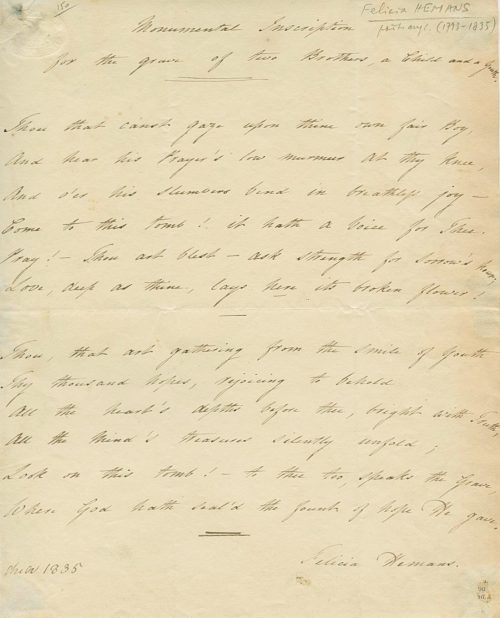 150
Felicia HEMANS
(1793-1835)
Monumental Inscription
for the grave of two Brothers, a Child and a Youth.
Thou that canst gaze upon thine own fair Boy,
And hear his Prayer's low murmur at thy knee,
And o'er his slumbers bend in breathless joy –
Come to this tomb! it hath a Voice for Thee.
Pray! – Thou art blest – ask strength for Sorrow's hour,
Love, deep as thine, lays here its broken flower!
Thou, that art gathering from the smile of Youth
Thy thousand hopes, rejoicing to behold
All the heart's depths before thee, bright with Truth,
All the Mind's treasures silently unfold;
Look on this tomb! – to thee too, speaks the Grave
Where God hath seal'd the fount of hope He gave.
Felicia Hemans.
1835